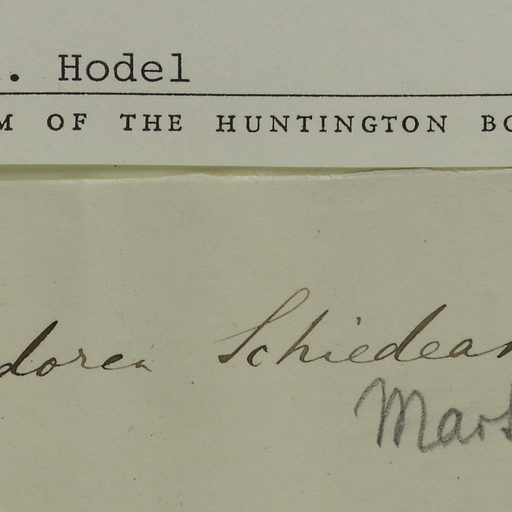 . Hodel
M OF THE HUNTINGTON BO
dorea Schiedean
Mart